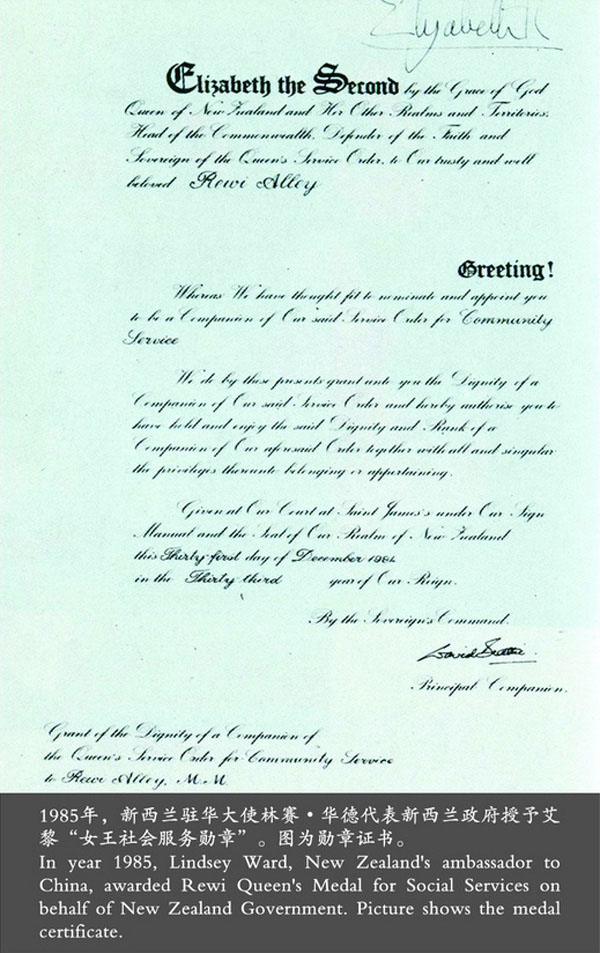 Elizabeth R
Elizabeth the Second by the Grace of God
Queen of New Zealand and Her Other Realms and Territories,
Head of the Commonwealth, Defender of the Faith and
Sovereign of the Queen's Service Order, to Our trusty and well
beloved Rewi Alley
Greeting!
Whereas We have thought fit to nominate and appoint you
to be a Companion of Our said Service Order for Community
Service
We do by these presents grant unto you the Dignity of a
Companion of Our said Service Order and hereby authorise you to
have hold and enjoy the said Dignity and Rank of a
Companion of Our aforesaid Order together with all and singular
the privileges thereunto belonging or appertaining.
Given at Our Court at Saint James's under Our Sign
Manual and the Seal of Our Realm of New Zealand
this Thirty-first day of December 1984
in the Thirty third year of Our Reign.
By the Sovereign's Command.
David Beattie
Principal Companion.
Grant of the Dignity of a Companion of
the Queen's Service Order for Community Service
to Rewi Alley, M.M.
1985年，新西兰驻华大使林赛·华德代表新西兰政府授予艾
黎“女王社会服务勋章”。图为勋章证书。
In year 1985, Lindsey Ward, New Zealand's ambassador to
China, awarded Rewi Queen's Medal for Social Services on
behalf of New Zealand Government. Picture shows the medal
certificate.